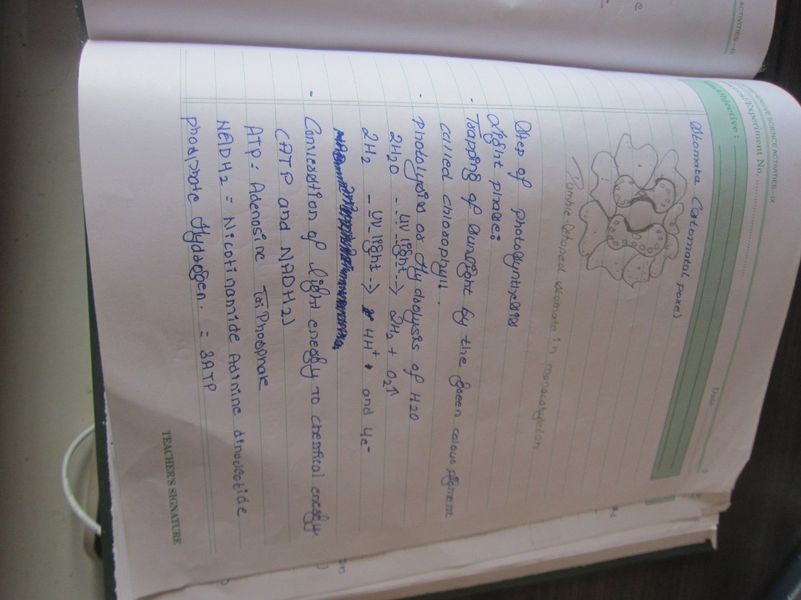 SCIENCE ACTIVITIES-IX
Experiment No.
Objective :
Date
Stomata (Stomatal pore)
Dumble shaped stomate in monocotyledon
Step of photosynthesis
Light phase:
• Trapping of sunlight by the green colour pigment
called chlorophyll.
• Photolysis or Hydrolysis of H2O
2H2O - UV light --> 2H2 + O2↑
2H2 - UV light -> 4H+ and 4e-
• Convertion of light energy to chemical energy
(ATP and NADH2)
ATP = Adenosine Tri Phosphate
NADH2 = Nicotinamide Adinine dinucotide
phosphate Hydrogen. = 3ATP
TEACHER'S SIGNATURE